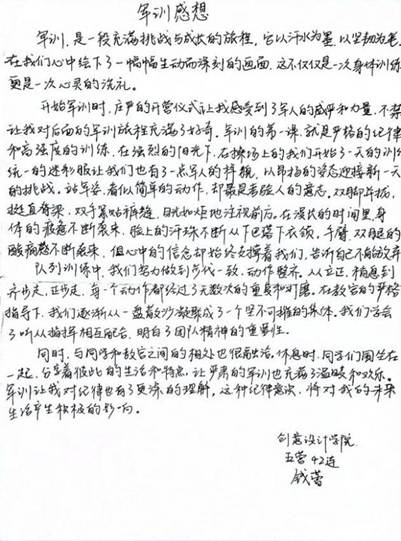 军训感想
军训,是一段充满挑战与成长的旅程,它以汗水为墨,以坚韧为笔,
在我们心中绘下了一幅幅生动而深刻的画面,这不仅仅是一次身体训练
更是一次心灵的洗礼。
开始军训时,庄严的开营仪式让我感受到了军人的威严和力量,不禁
让我对后面的军训旅程充满了好奇。军训的第一课,就是严格的纪律
和高强度的训练,在强烈的阳光下,在操场上的我们开始了一天的训练
统一的迷彩服让我们也有了一点军人的模样,以昂扬的姿态迎接新一天
的挑战,站军姿,看似简单的动作,却最是考验人的意志。双脚并拢,
挺直脊梁,双手紧贴裤缝,目光如炬地注视前方。在漫长的时间里身
体的疲惫不断袭来,脸上的汗珠不断从下巴落下衣领,手臂、双腿的
酸痛感不断袭来,但心中的信念却始终支撑着我们,告诉自己不能放弃
队列训练中,我们努力做到步伐一致、动作整齐。从立正、稍息到
齐步走、正步走,每一个动作都经过了无数次的重复和打磨。在教官的严格
指导下,我们逐渐从一盘散沙凝聚成了一个坚不可摧的集体。我们学会
了听从指挥相互配合,明白了团队精神的重要性。
同时,与同学和教官之间的相处也很融洽。休息时,同学们围坐在
一起,分享着彼此的生活和特点,让严肃的军训也充满了温暖和欢乐。
军训让我对纪律也有了更深的理解。这种纪律意识,将对我的未来
生活产生积极的影响。
创意设计学院
五营42连
钱蕾